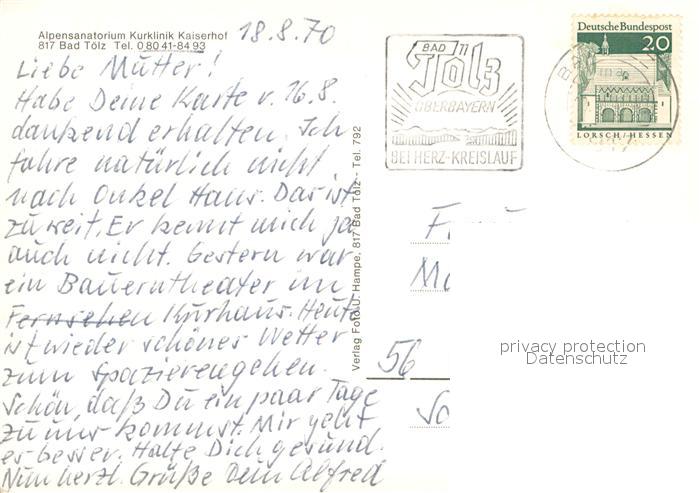 Alpensanatorium Kurklinik Kaiserhof
817 Bad Tölz Tel. 0 80 41-84 93
18.8.70
Liebe Mutter!
Habe Deine Karte v. 16.8.
dankend erhalten. Ich
fahre natürlich nicht
nach Onkel Hans. Das ist
zu weit. Er kennt mich ja
auch nicht. Gestern war
ein Bauerntheater im
Fernsehen Kurhaus. Heute
ist wieder schönes Wetter
zum Spazierengehen.
Schön, daß Du ein paar Tage
zu uns kommst. Mir geht
es besser. Halte Dich gesund.
Nun herzl. Grüße Dein Alfred
Verlag Foto U. Hampe, 817 Bad Tölz - Tel. 792
BAD
Tölz
OBERBAYERN
BEI HERZ-KREISLAUF
Deutsche Bundespost
20
LORSCH/HESSEN
56
privacy protection
Datenschutz